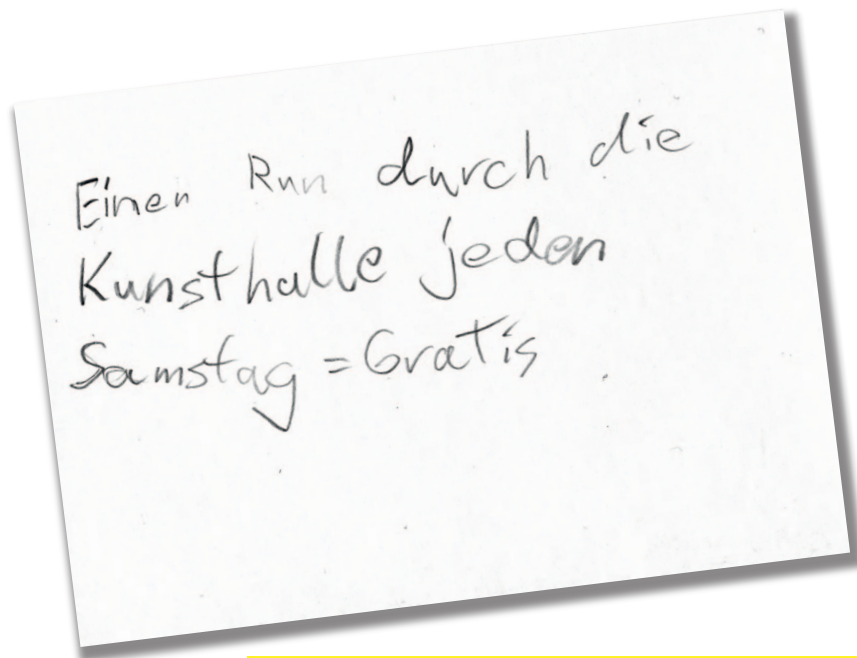 Einen Run durch die
Kunsthalle jeden
Samstag = Gratis